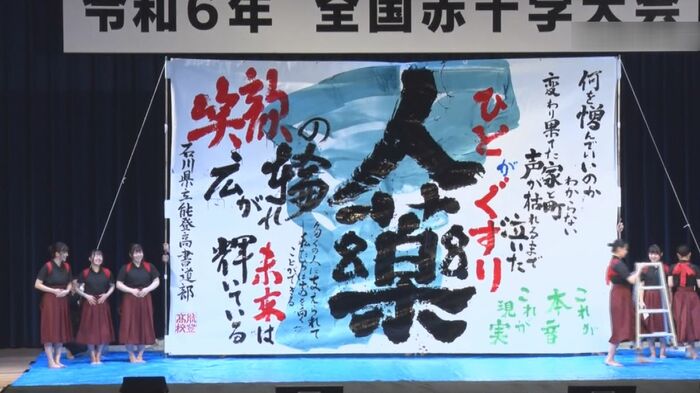 令和６年　全国赤十字大会
何を憎んでいいのか
わからない
変わり果てた家と町
声が枯れるまで
泣いた
これが
本音
これが
現実
ひとがくすり
人薬
多くの人に支えられて
ことができる
笑顔の輪
広がれ
未来は
輝いている
石川県立能登高書道部
能登
高校